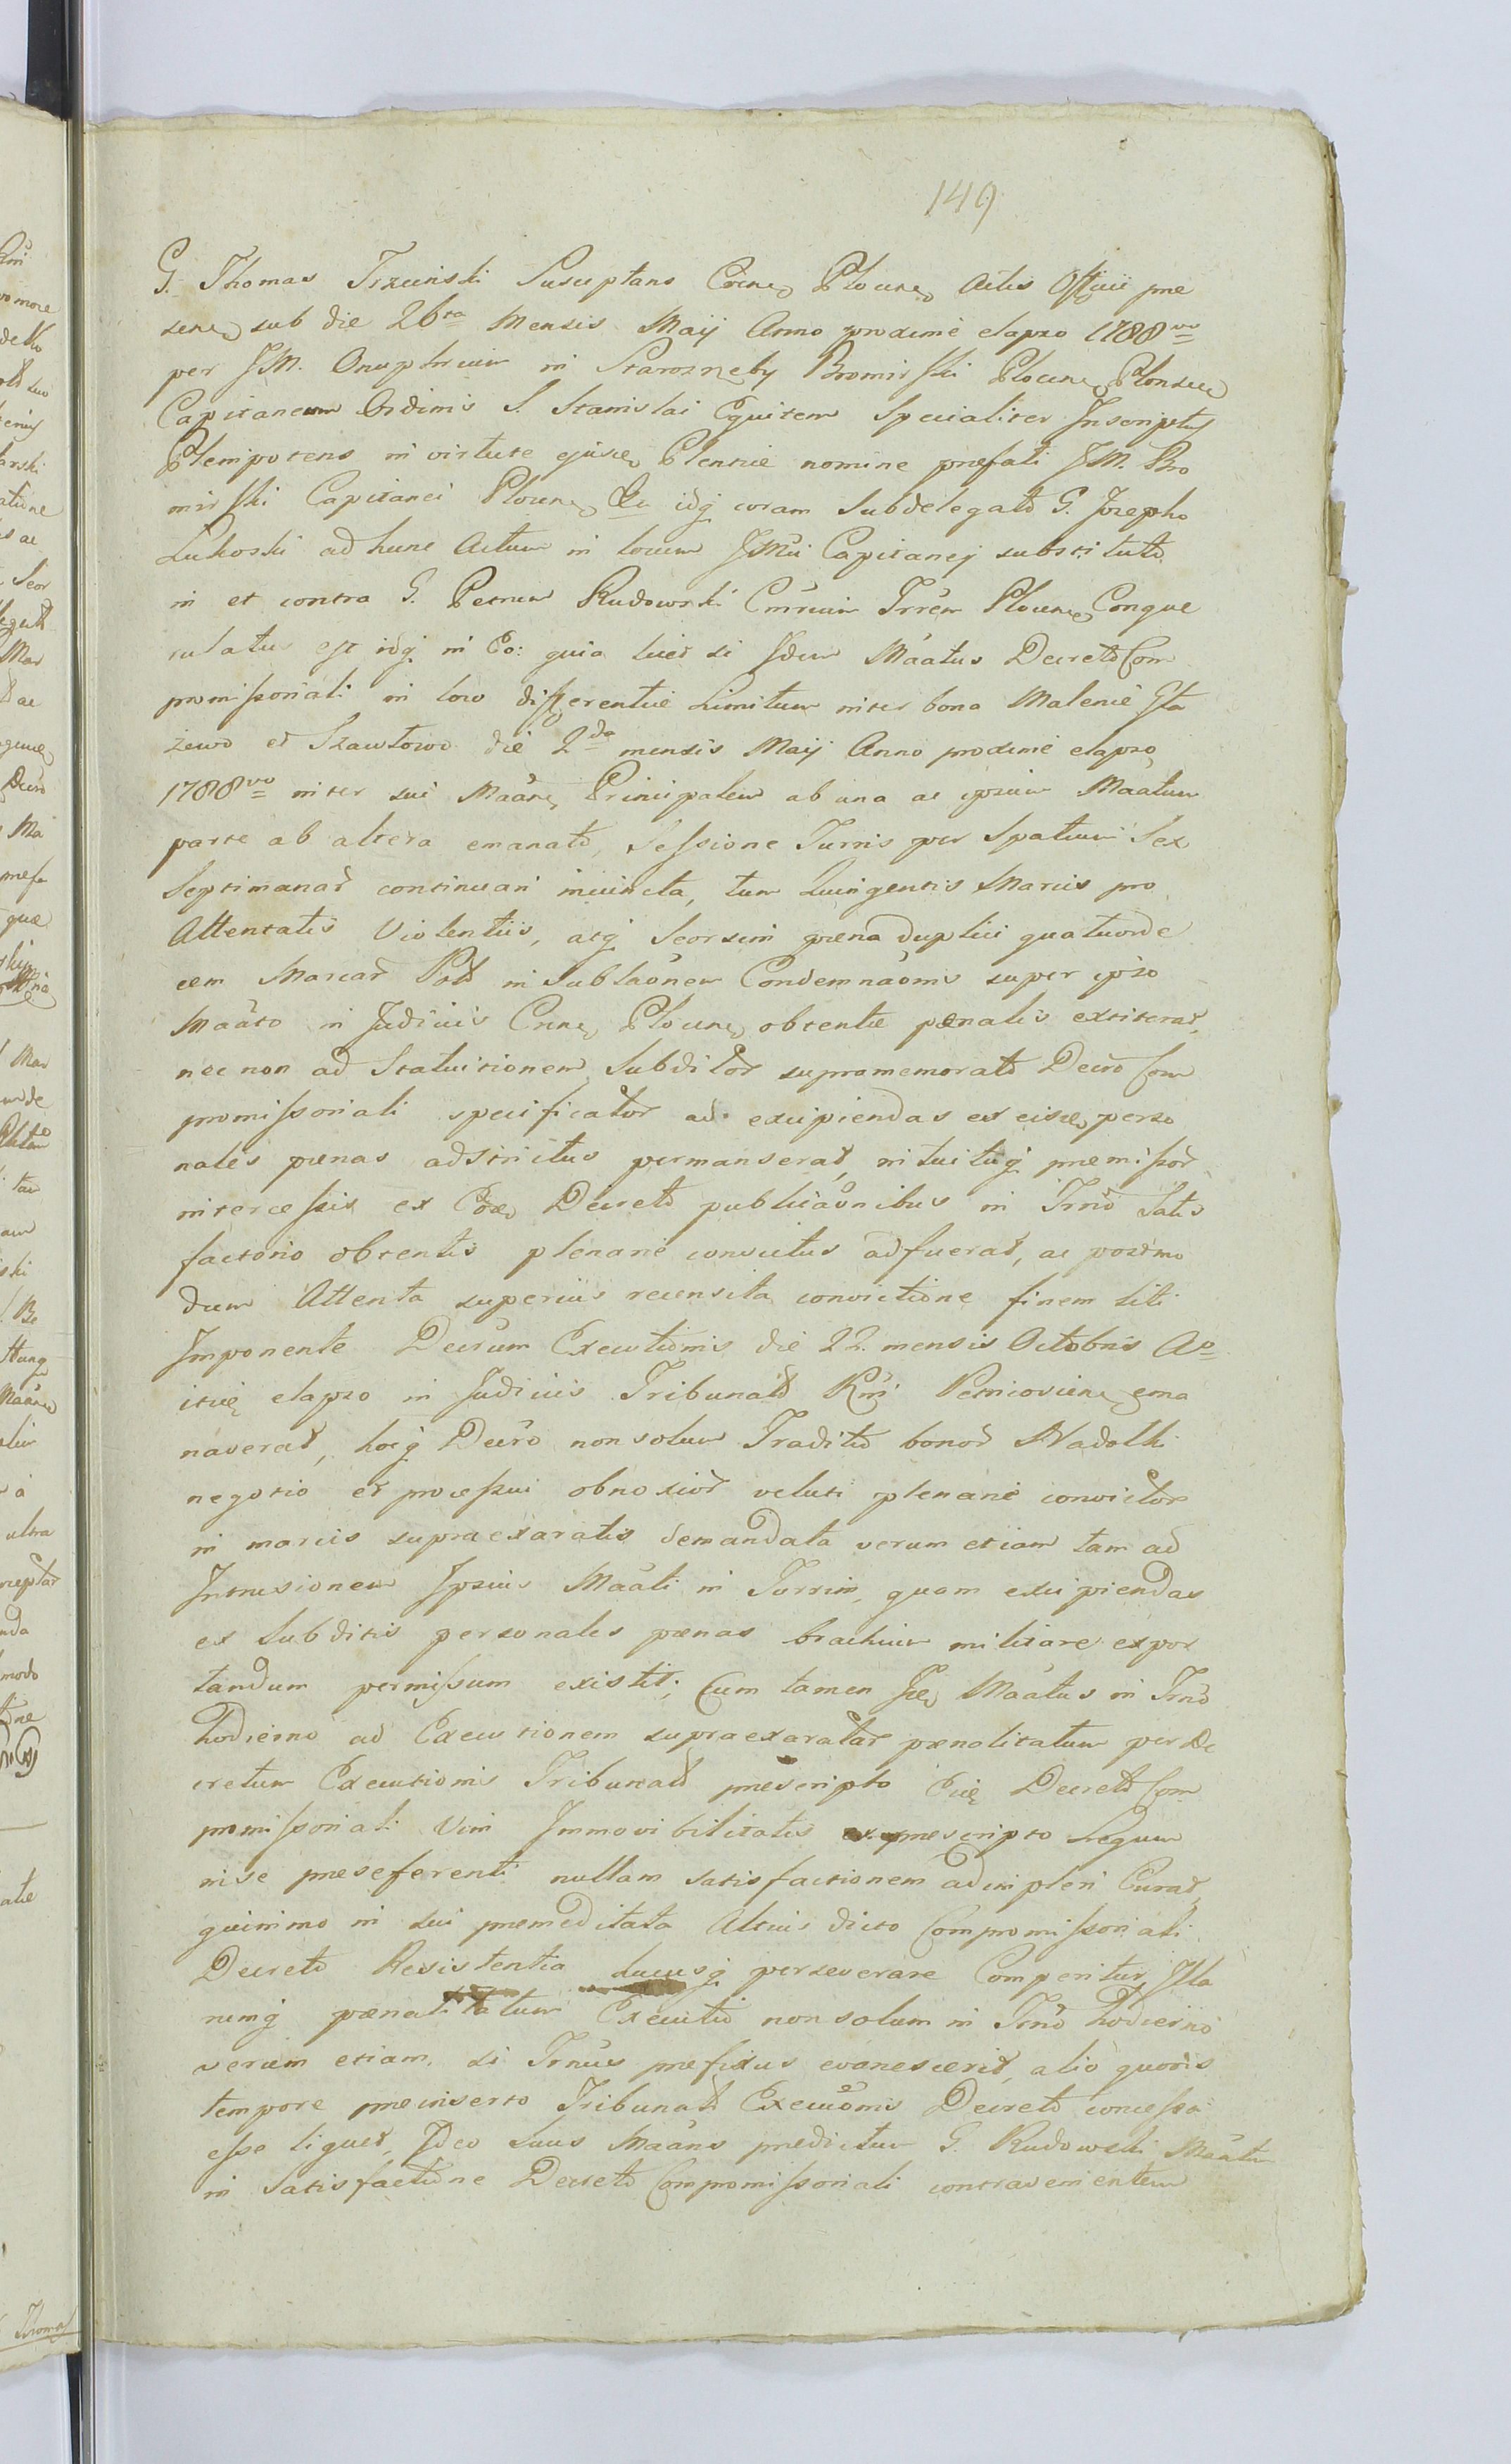 149
G. Thomas Trzcinski Susceptans Crene Plocene Actis Officii prae
sene sub die 26ta Mensis Maij Anno proxime elapso 1788vo
per JM. Onuphrium in Starozreby Bromirski Plocene Plonsce
Capitaneum Ordinis S. Stanislai Equitem Specialiter Inscriptus
Plenipotens in virtute ejusce Plentiae nomine praefati JM. Bro
mirski Capitanei Plocene &c idq coram Subdelegato G. Josepho
Lukoski ad hunc Actum in locum JMci Capitanej substituto
in et contra G. Petrum Rudowski Cmrcum Trrem Plocene Conque
rulatus est idq in Eo: quia licet si Idem Maatus Decreto Com
promissoriali in loco differentiae Limitum inter bona Malenie Sta
zewo et Szawłowo die 2da mensis Maij Anno proxime elapso
1788vo inter sui Maane Principalem ab una ac ipsum Maatum
parte ab altera emanato, Sessione Turris per Spatium Sex
Septimanar continuari invincta, tum Quingentis Marcis pro
Attentatis Violentiis, atq Seorsim paena duplici quatuorde
cem Marcar Pol in Sublaonem Condemnaonis super ipso
Maato in Judiciis Cnne Plocene obtentae paenalis extiterat,
nec non ad Statuitionem Subditor supramemorato Decro Com
promissoriali specificator ad excipiendas ex eisce perso
nales paenas adstrictus permanserat, intuituq praemissor
intercessis ex Eoe Decreto publicaonibus in Trno Satis
factorio obtentis plenarie convictus adfuerat, ac postmo
dum Attenta superius recensita convictione finem liti
Imponente Decrum Executionis die 22. mensis Octobris Ao
itie elapso in Judiciis Tribunalo Rni Petricoviene ema
naverat, hocq Decro non solum Traditio bonor Nadolki
negotio et processui obnoxior veluti plenarie convictor
in marcis supraexaratis demandata verum etiam tam ad
Intrusionem Ipsius Maati in Turrim, quam excipiendas
ex Subditis personales paenas brachium militare expor
tandum permissum existit; Cum tamen Ice Maatus in Trno
hodierno ad Executionem supraexaratar paenalitatum per De
cretum Executionis Tribunald praescripto Eie Decreto Com
promissoriali Vim Immovibilitatis ex praescripto Legum
in se praeseferenti nullam satisfactionem adimpleri Curat,
quinimo in sui praemeditata Altius dicto Compromissoriali
Decreto Resistentia hucusq perseverare Comperitur, Illa
rumq paenalitatum Executio non solum in Trno hodierno
verum etiam si Trnus praefixus evanescerit, alio quovis
tempore praeinserto Tribunald Execuonis Decreto concessa
esse liquet, Ideo Suus Maans praedictum G. Rudowski Maatum
in Satisfactione Decreto Compromissoriali contravenientem